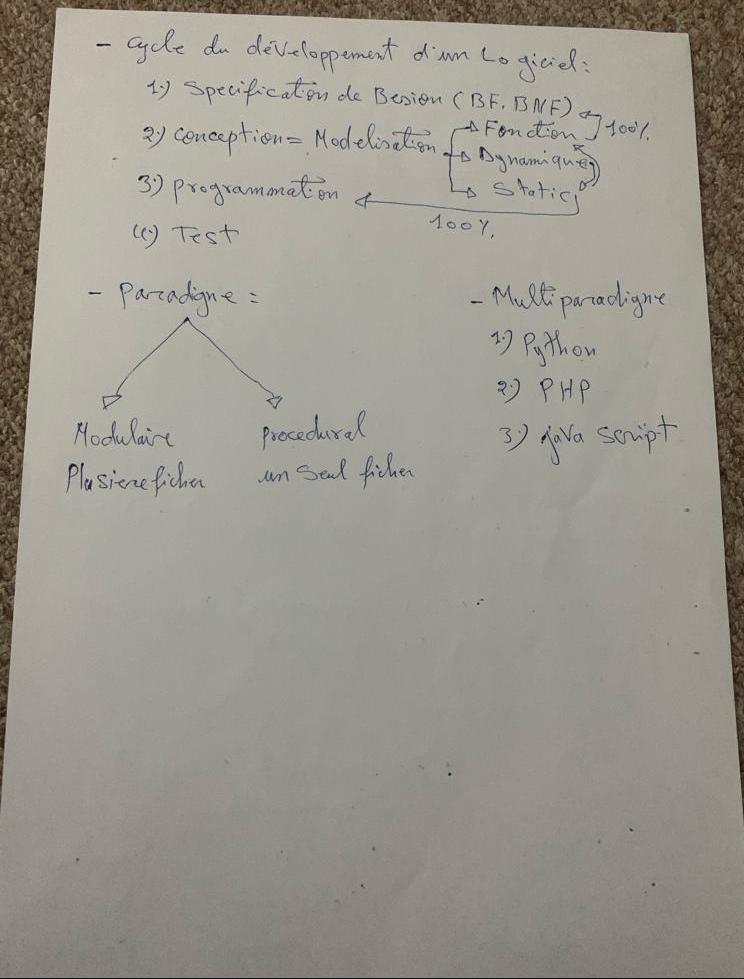 - Cycle du développement d'un Logiciel:
1.) Specification de Besion (BF, BNF)
2.) Conception = Modelisation
Fonction 100%
Dynamique
Static
3.) programmation
100%
4.) Test
- Paradigne =
Modulaire
Plusiere ficher
procedural
un seul ficher
- Multiparadigne
1.) Python
2.) PHP
3.) java script